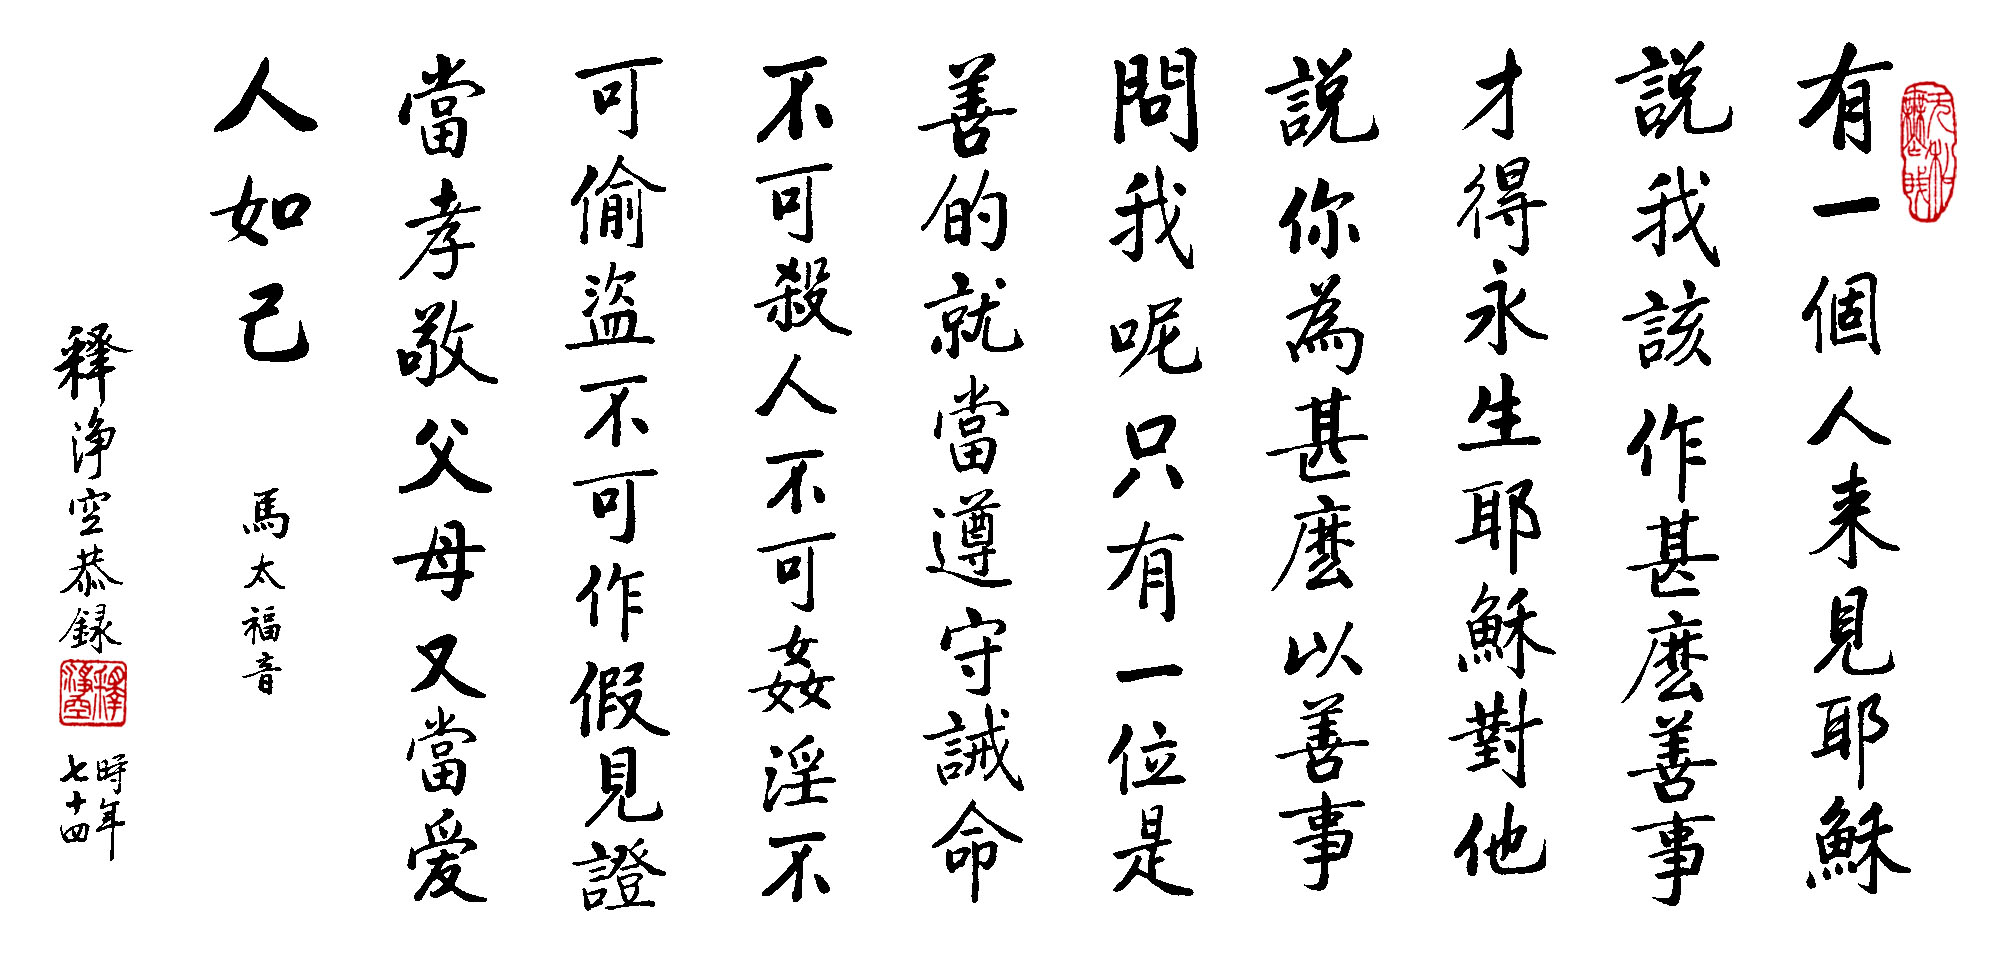 有一個人来見耶穌
説我該作甚麽善事
才得永生耶穌對他
説你為甚麽以善事
問我呢只有一位是
善的就當遵守誡命
不可殺人不可姦淫不
可偷盜不可作假見證
當孝敬父母又當爱
人如己
馬太福音
釋淨空恭録
時年
七十四
釋淨空